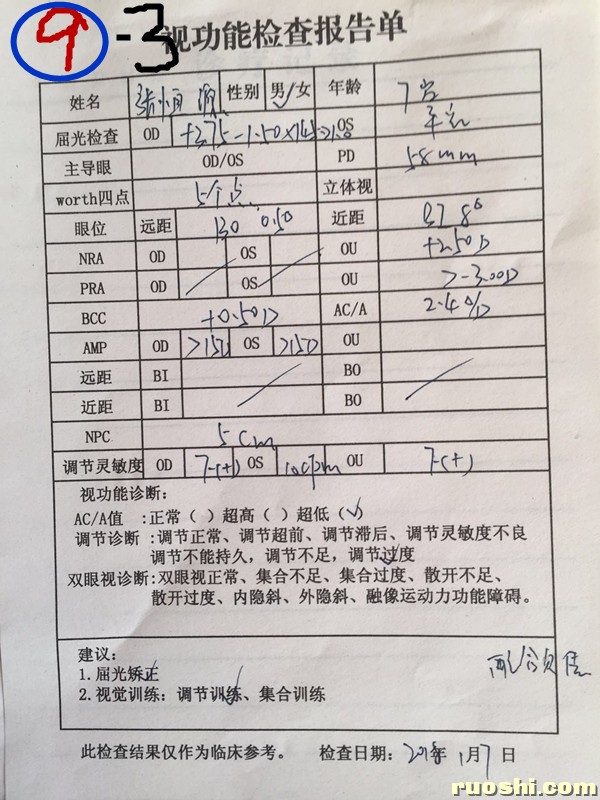 9-3
视功能检查报告单
姓名 性别 男/女 年龄 7岁
屈光检查 OD +3.75 -1.50×145 OS 平光
主导眼 OD/OS PD 58mm
worth四点 5个点 立体视
眼位 远距 近距
NRA OD OS OU +2.50D
PRA OD OS OU >-3.00D
BCC +0.50D AC/A
AMP OD >15D OS >15D OU
远距 BI BO
近距 BI BO
NPC 5cm
调节灵敏度 OD 7-(+) OS 10cpm OU 7-(+)
视功能诊断:
AC/A值 :正常( )超高( )超低(√)
调节诊断 :调节正常、调节超前、调节滞后、调节灵敏度不良
调节不能持久,调节不足,调节过度
双眼视诊断:双眼视正常、集合不足、集合过度、散开不足、
散开过度、内隐斜、外隐斜、融像运动力功能障碍。
建议:
1.屈光矫正
2.视觉训练:调节训练、集合训练
此检查结果仅作为临床参考。 检查日期:2018年1月7日
ruoshi.com